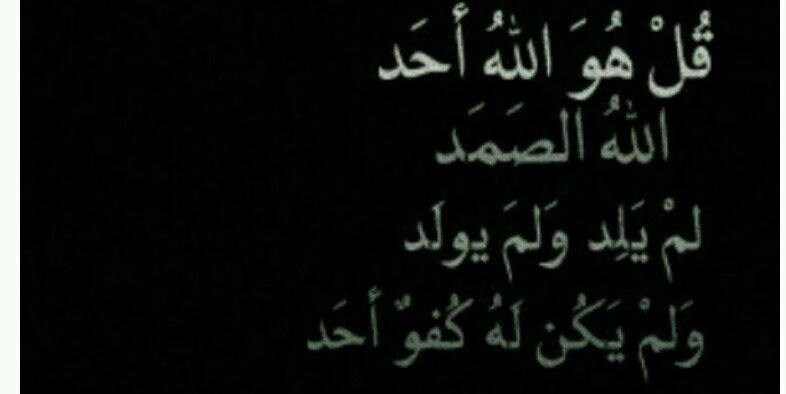 قُلْ هُوَ اللهُ أَحَد
اللهُ الصَمَد
لمْ يَلِد وَلمَ يولَد
وَلمْ يَكُن لَهُ كُفوٌ أَحَد